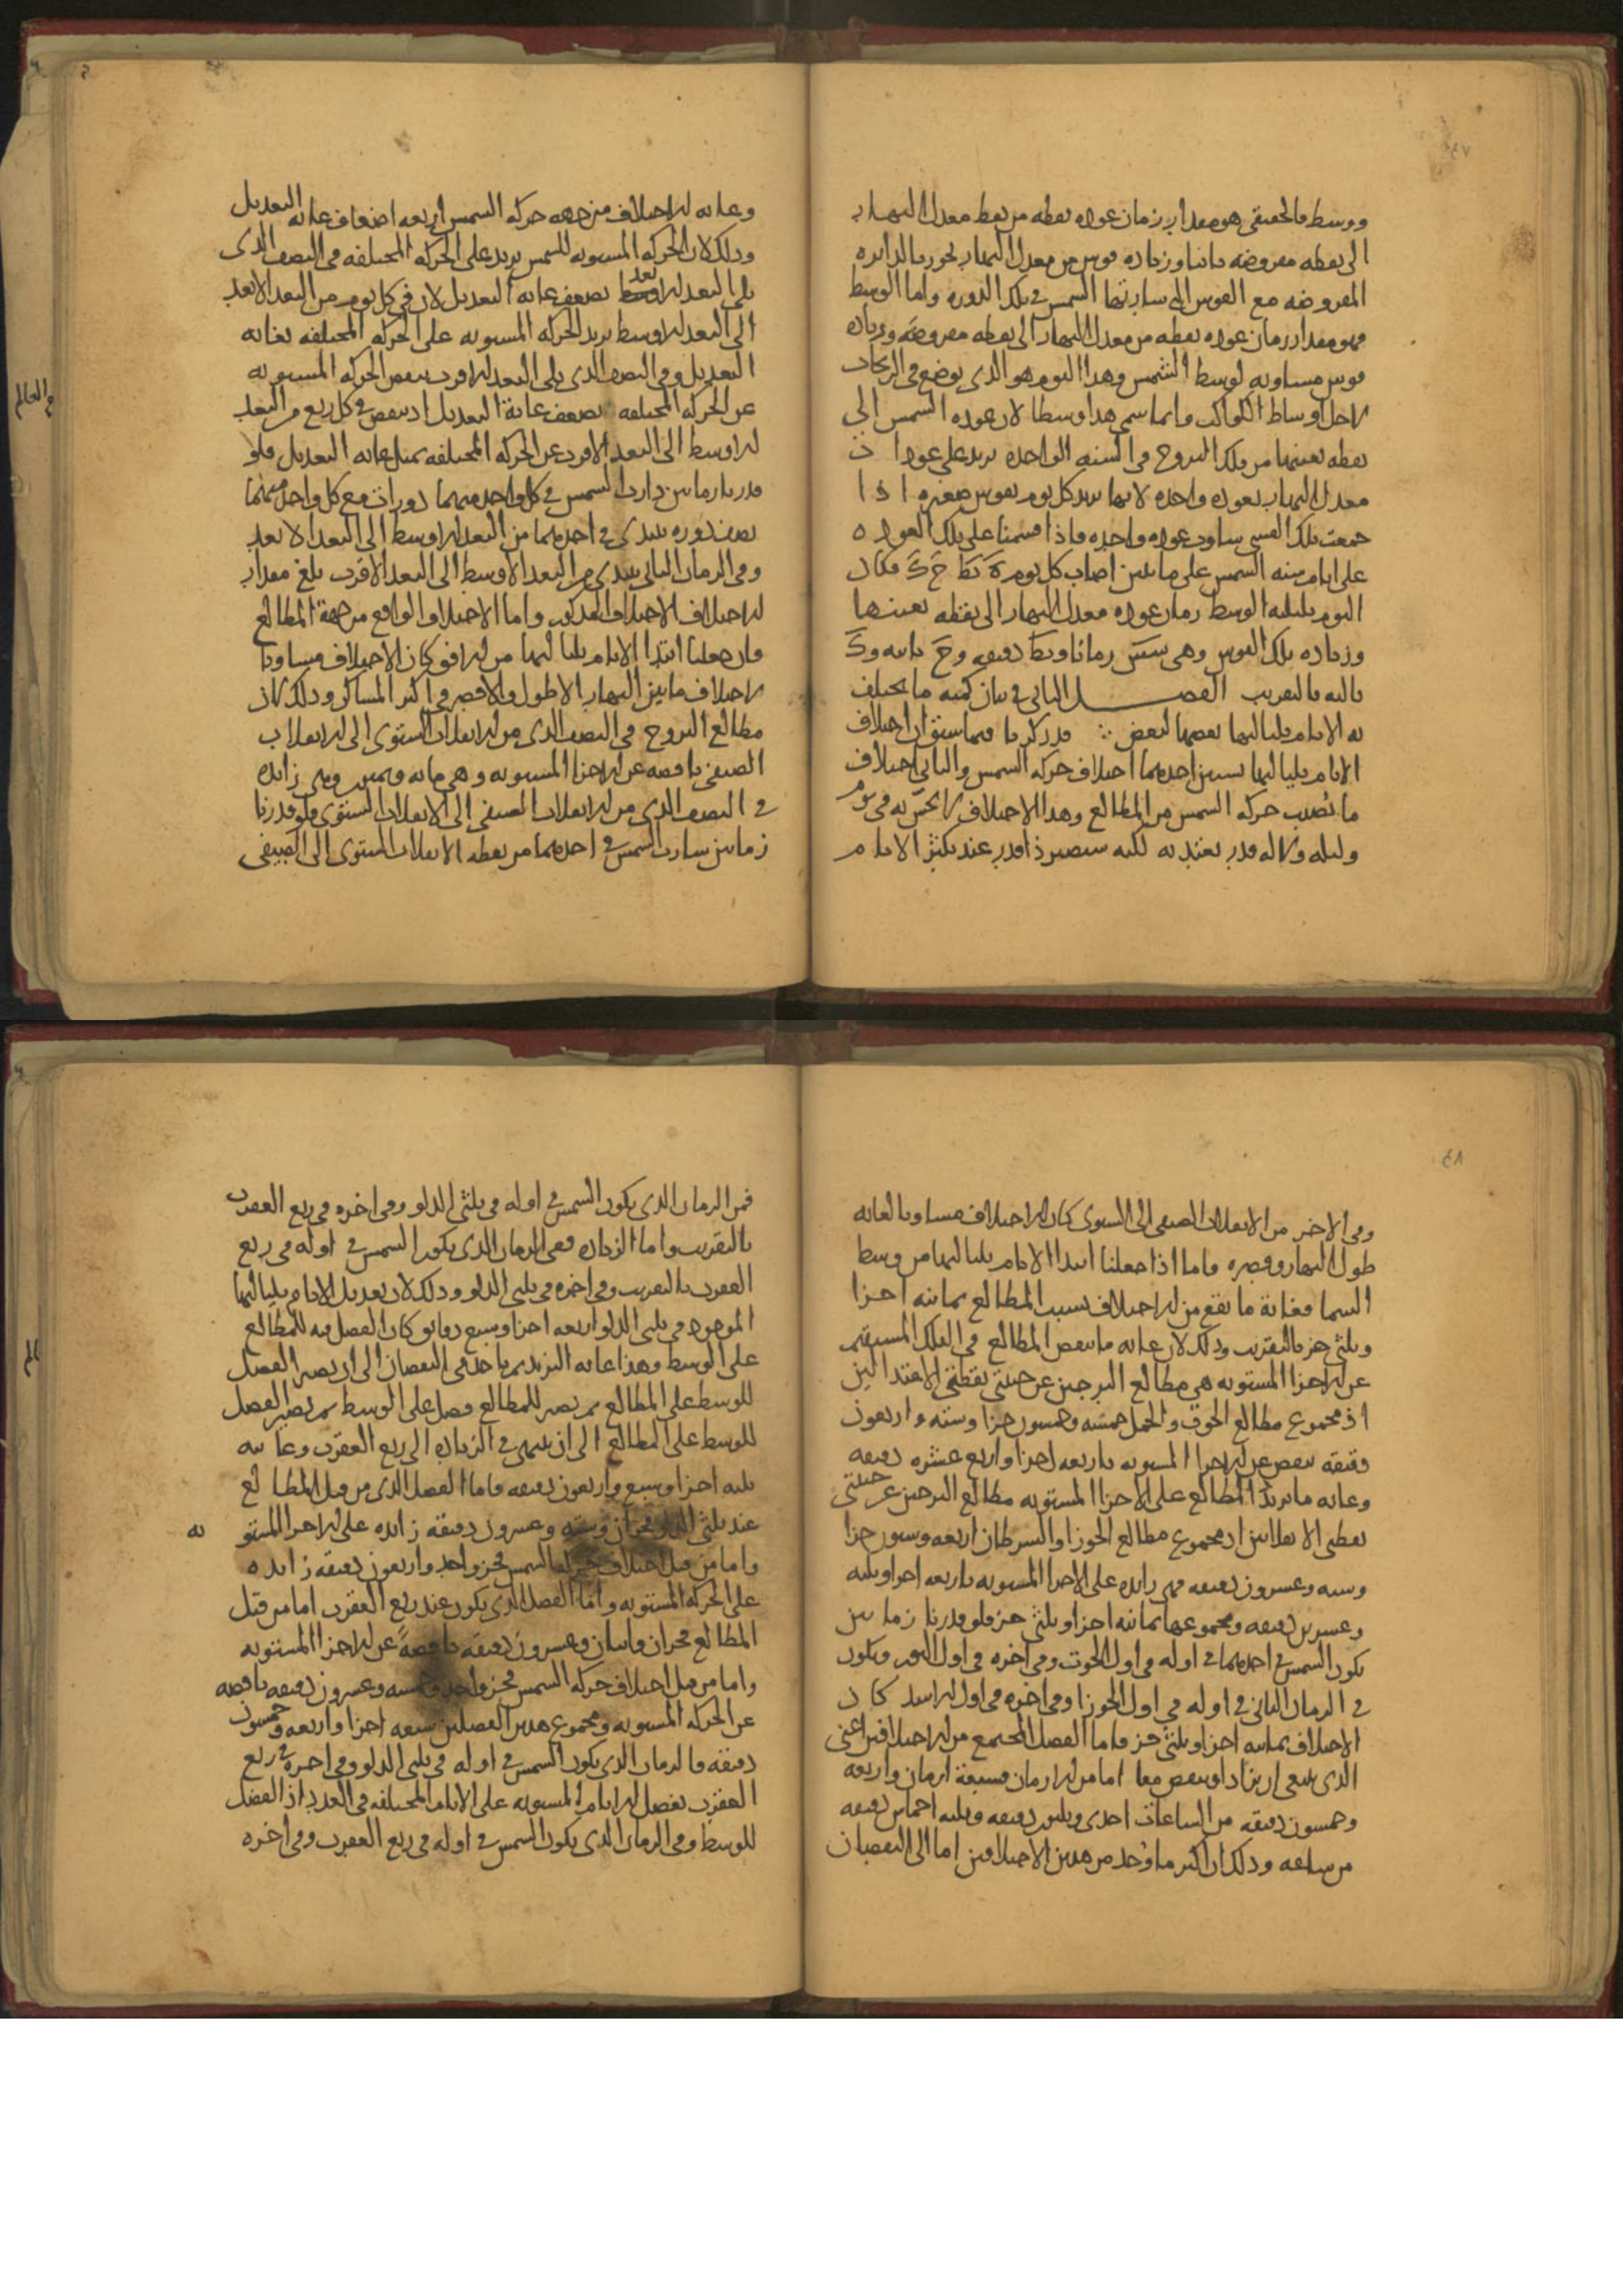 ووسط فالحقيقى هو مقدار زمان عوده نقطه من نقط معدل النهار
الى نقطه مفروضه ثانيا وزياده قوس من معدل النهار تجوز بالدايره
المفروضه مع القوس التى سارتها الشمس فى تلك الدوره واما الوسط
فهو مقدار زمان عوده نقطه من معدل النهار الى نقطه مفروضه وزياده
قوس مساويه لوسط الشمس وهذا اليوم هو الذى يوضع فى الزيجات
لاجل اوساط الكواكب وانما سمى هذا وسطا لان عوده الشمس الى
نقطه بعينها من فلك البروج فى السنه الواحده يزيد على عودات
معدل النهار بعوده واحده لانها تزيد كل يوم بقوس صغيره اذا
جمعت تلك القسى ساوت عوده واحده فاذا قسمنا على تلك العوده
على ايام سنه الشمس على ما تبين اصاب كل يوم ه نط ح ك فكان
اليوم بليلته الوسط زمان عوده معدل النهار الى نقطه بعينها
وزياده تلك القوس وهى ستين زمانا ونط دقيقه وح ثانيه وك
ثالثه بالتقريب الفصل الثانى فى بيان كميه ما يختلف
به الايام بلياليها بعضها لبعض قد ذكرنا فيما سبق ان اختلاف
الايام بلياليها لسببين احدهما اختلاف حركه الشمس والثانى اختلاف
ما نصيب حركه الشمس من المطالع وهذا الاختلاف لا يحس به فى يوم
وليله ولا له قدر يعتد به لكنه سيصير ذا قدر عند تكثر الايام
وغايه الاختلاف من جهه حركه الشمس اربعه اضعاف غايه التعديل
وذلك لان الحركه المستويه للشمس تزيد على الحركه المختلفه فى النصف الذى
يلى البعد الابعد بضعف غايه التعديل لان فى كل يوم من البعد الابعد
الى البعد الاوسط تزيد الحركه المستويه على الحركه المختلفه بغايه
التعديل وفى النصف الذى يلى البعد الاقرب ينقص الحركه المستويه
عن الحركه المختلفه بضعف غاية التعديل اذ ينقص فى كل ربع من البعد
الاوسط الى البعد الاقرب عن الحركه المختلفه بمثل غايه التعديل فلو
قدرنا زمانين دارت الشمس فى كل واحد منهما دورات مع كل واحد منهما
نصف دوره يبتدى فى احدهما من البعد الاوسط الى البعد الابعد
وفى الزمان الثانى يبتدى من البعد الاوسط الى البعد الاقرب بلغ مقدار
الاختلاف الاختلاف المذكور واما الاختلاف الواقع من جهة المطالع
فان جعلنا ابتدا الايام بلياليها من الافق كان الاختلاف مساويا
لاختلاف ما بين النهار الاطول والاقصر فى اكثر المساكن وذلك لان
مطالع البروج فى النصف الذى من الانقلاب الشتوى الى الانقلاب
الصيفى ناقصه عن الاجزا المستويه وهى مايه وثمنين وهى زايده
فى النصف الذى من الانقلاب الصيفى الى الانقلاب الشتوى فلو قدرنا
زمانين سارت الشمس فى احدهما من نقطه الانقلاب الشتوى الى الصيفى
وفى الاخر من الانقلاب الصيفى الى الشتوى كان الاختلاف مساويا لغايه
طول النهار وقصره واما اذا جعلنا ابتدا الايام بلياليها من وسط
السما فغاية ما يقع من الاختلاف بسبب المطالع ثمانيه اجزا
وثلثى جز بالتقريب وذلك لان غايه ما ينقص المطالع فى الفلك المستقيم
عن الاجزا المستويه هى مطالع البرجين عن جنبتى نقطتى الاعتدالين
اذ مجموع مطالع الحوت والحمل خمسه وخمسون جزا وسته واربعون
دقيقه ينقص عن الاجزا المستويه باربعه اجزا واربع عشره دقيقه
وغايه ما يزيد المطالع على الاجزا المستويه مطالع البرجين عن جنبتى
نقطتى الانقلابين اذ مجموع مطالع الجوزا والسرطان اربعه وستون جزا
وسته وعشرون دقيقه فهى زايده على الاجزا المستويه باربعه اجزا وثلثه
وعشرين دقيقه ومجموعها ثمانيه اجزا وثلثى جز فلو قدرنا زمانين
تكون الشمس فى احدهما فى اوله فى اول الحوت وفى اخره فى اول الثور وتكون
فى الزمان الثانى فى اوله فى اول الجوزا وفى اخره فى اول الاسد كان
الاختلاف ثمانيه اجزا وثلثى جز فاما الفصل المجتمع من الاختلافين اعنى
الذى ينبغى ان يزاد او ينقص معا اما من الازمان فسبعة ازمان واربعه
وخمسون دقيقه من الساعات احدى وثلثون دقيقه وثلثه اخماس دقيقه
من ساعه وذلك ان اكثر ما وجد من هذين الاختلافين اما الى النقصان
فمن الزمان الذى تكون الشمس فى اوله فى ثلثى الدلو وفى اخره فى ربع العقرب
بالتقريب واما الزياده ففى الزمان الذى تكون الشمس فى اوله فى ربع
العقرب بالتقريب وفى اخره فى ثلثى الدلو وذلك لان تعديل الايام بلياليها
الموجود فى ثلثى الدلو اربعه اجزا وسبع دقايق كان الفصل فيه للمطالع
على الوسط وهذا غايه التزيد ثم ياخذ فى النقصان الى ان يصير الفصل
للوسط على المطالع ثم يصير للمطالع فصل على الوسط ثم يصير الفصل
للوسط على المطالع الى ان ينتهى فى الزياده الى ربع العقرب وغايته
ثلثه اجزا وسبع واربعون دقيقه فاما الفصل الذى من قبل المطالع
عند ثلثى الدلو فجزان وسته وعشرون دقيقه زايده على الاجزا المستو يه
واما من قبل اختلاف حركه الشمس فجز واحد واربعون دقيقه زايده
على الحركه المستويه واما الفصل الذى يكون عند ربع العقرب اما من قبل
المطالع فجزان واثنان وعشرون دقيقه ناقصةً عن الاجزا المستويه
واما من قبل اختلاف حركه الشمس فجز واحد وخمسه وعشرون دقيقه ناقصه
عن الحركه المستويه ومجموع هذين الفصلين سبعه اجزا واربعه وخمسون
دقيقه فالزمان الذى يكون الشمس فى اوله فى ثلثى الدلو وفى اخره فى ربع
العقرب تفضل الايام المستويه على الايام المختلفه فى العدد اذ الفضل
للوسط وفى الزمان الذى يكون الشمس فى اوله فى ربع العقرب وفى اخره